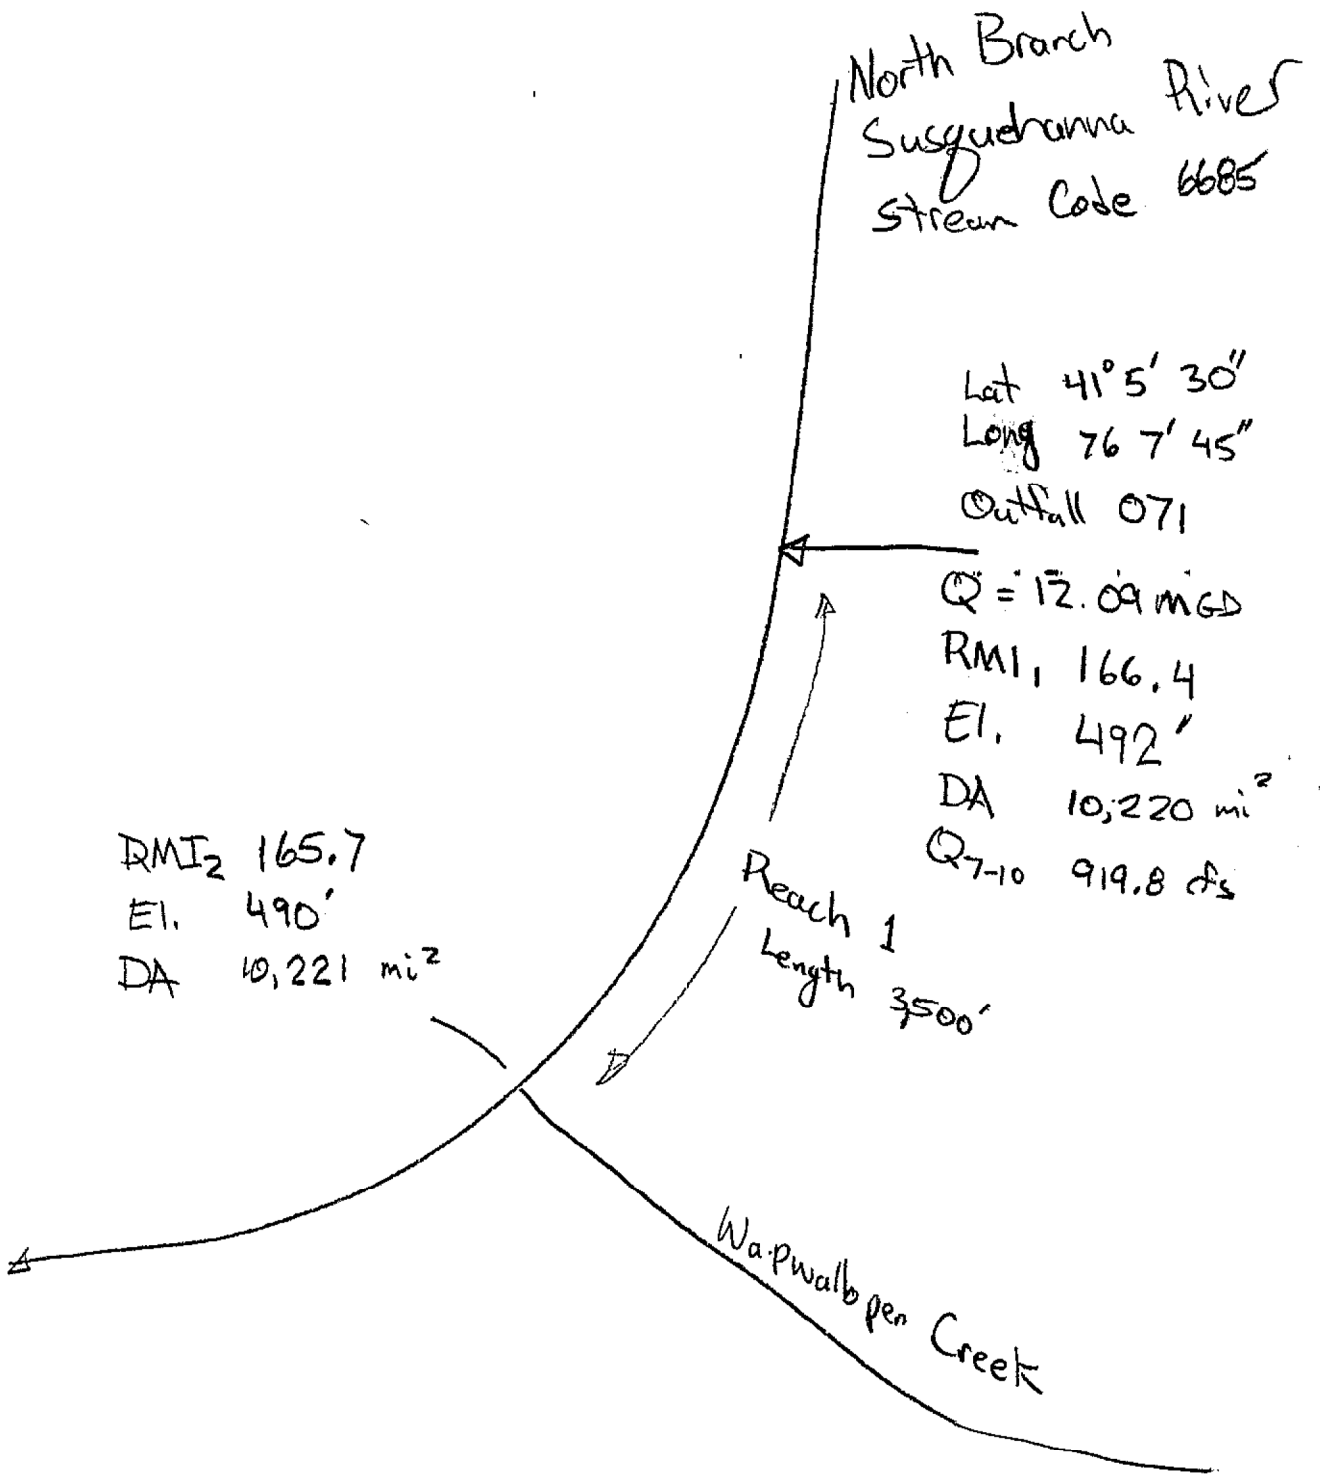 North Branch
Susquehanna River
Stream Code 6685
Lat 41° 5' 30"
Long 76 7' 45"
Outfall 071
Q = 12.09 MGD
RMI, 166.4
El. 492'
DA 10,220 mi²
Q7-10 919.8 cfs
RMI2 165.7
El. 490'
DA 10,221 mi²
Reach 1
Length 3,500'
Wapwallopen Creek